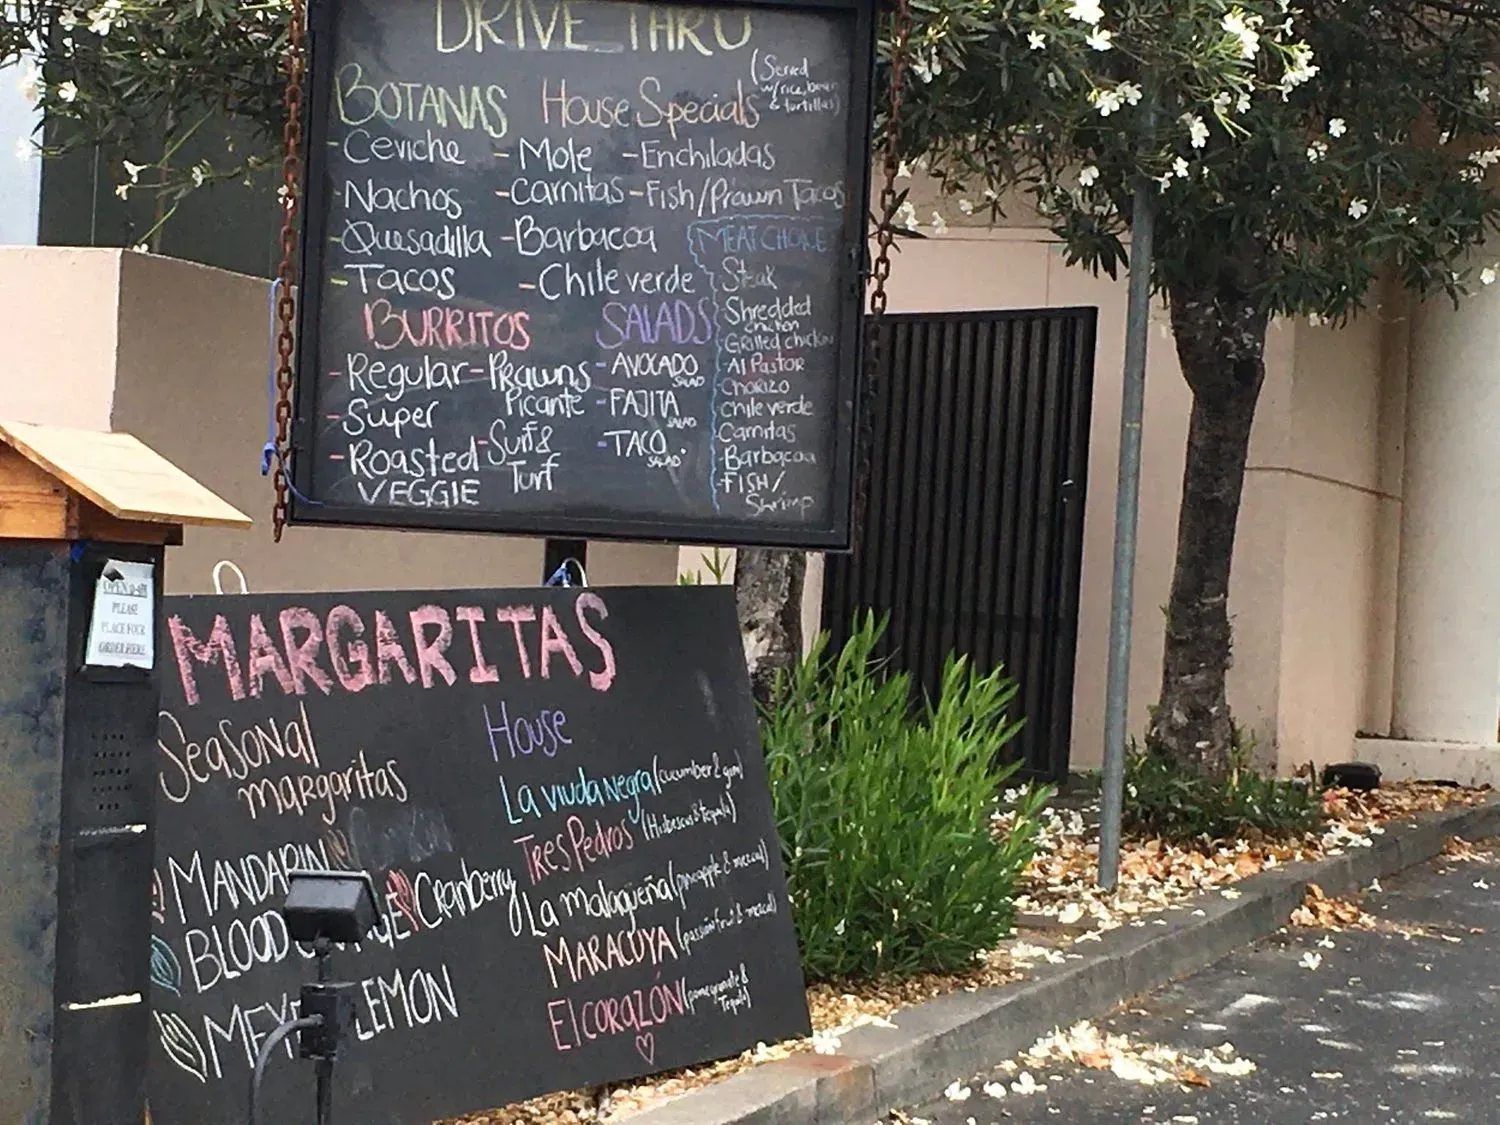 DRIVE THRU
BOTANAS
- Ceviche
- Nachos
- Quesadilla
- Tacos
House Specials
(Served
w/rice, bean
& tortillas)
- Mole
- Carnitas
- Barbacoa
- Chile verde
- Enchiladas
- Fish/Prawn Tacos
BURRITOS
- Regular
- Super
- Roasted
VEGGIE
- Prawns
Picante
- Surf &
Turf
SALADS
- AVOCADO
SALAD
- FAJITA
SALAD
- TACO
SALAD
MEAT CHOICE
Steak
Shredded
chicken
Grilled chicken
Al Pastor
Chorizo
chile verde
Carnitas
Barbacoa
FISH/
Shrimp
PLEASE
PLACE YOUR
ORDER HERE
MARGARITAS
Seasonal
margaritas
MANDARIN
BLOOD
Cranberry
LEMON
House
La viuda negra (cucumber & gin)
Tres Pedros (Hibiscus & Tequila)
La malagueña (pineapple & mezcal)
MARACUYA (passion fruit & mezcal)
El CORAZÓN (pomegranate &
Tequila)